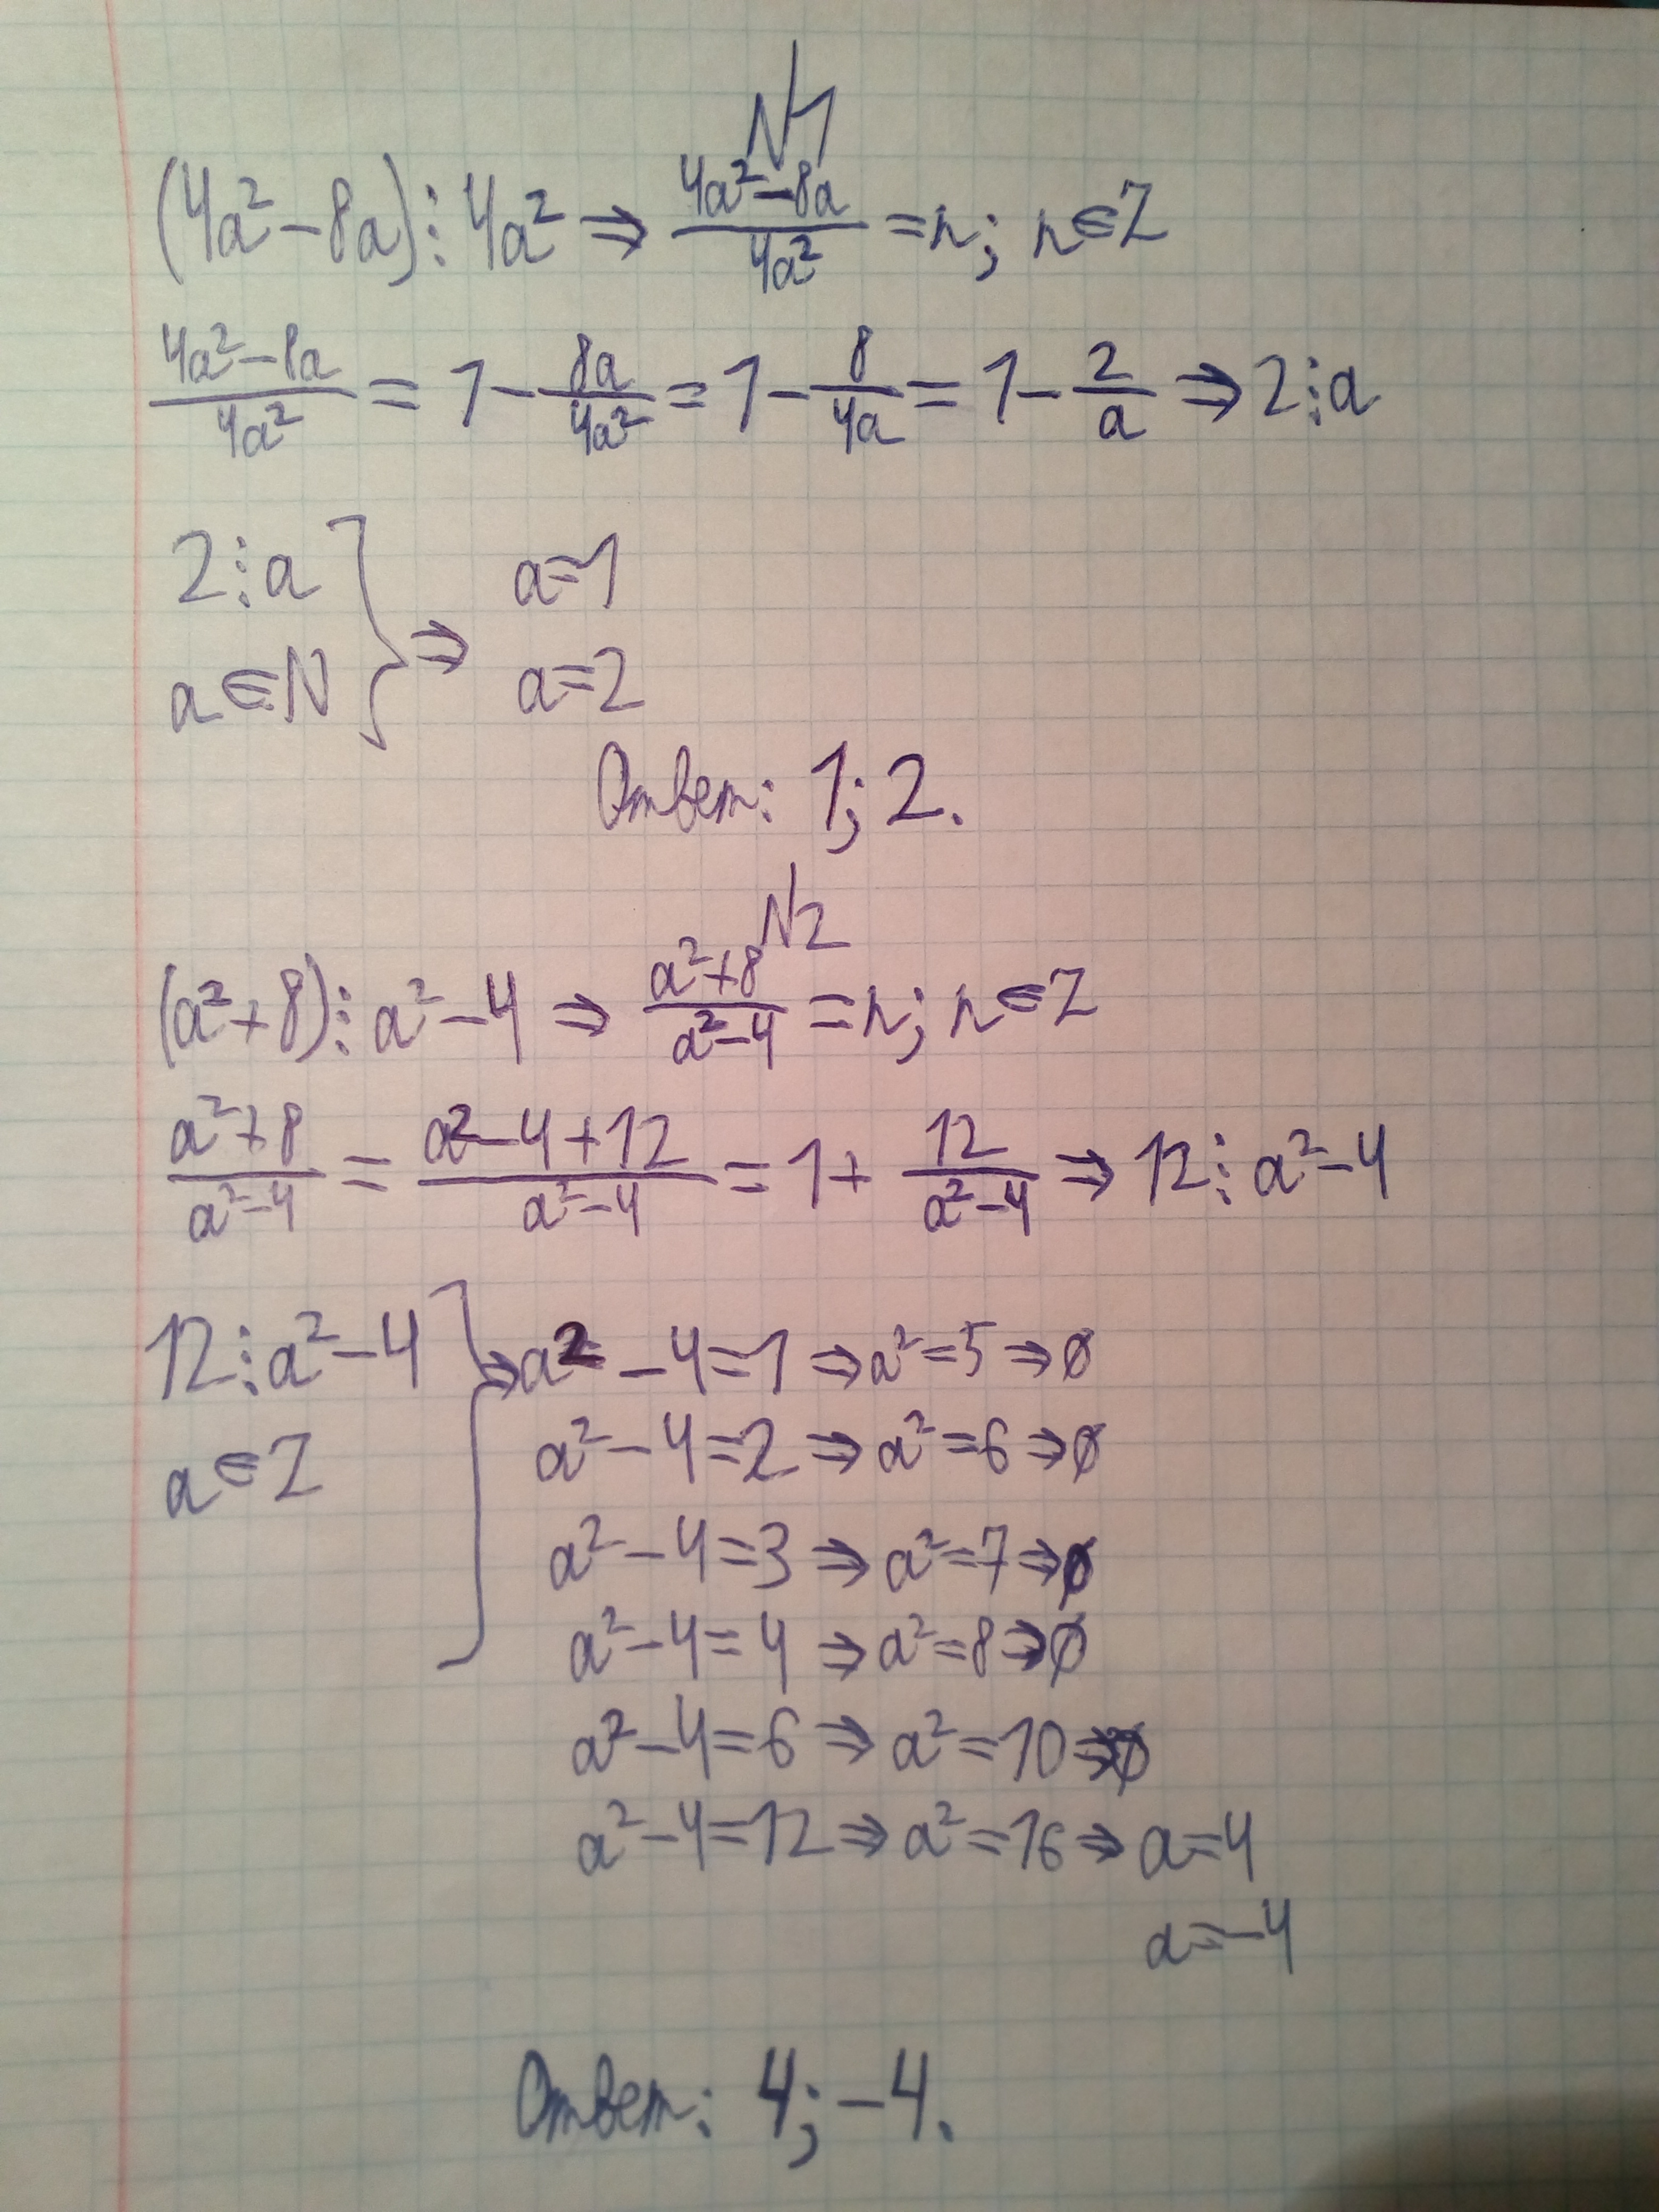 N1
(4a²-8a)⋮4a² ⇒ (4a²-8a)/(4a²) = n; n∈Z
(4a²-8a)/(4a²) = 1 - 8a/(4a²) = 1 - 8/(4a) = 1 - 2/a ⇒ 2⋮a
2⋮a } ⇒ a=1
a∈N a=2
Ответ: 1; 2.
N2
(a²+8)⋮a²-4 ⇒ (a²+8)/(a²-4) = n; n∈Z
(a²+8)/(a²-4) = (a²-4+12)/(a²-4) = 1 + 12/(a²-4) ⇒ 12⋮a²-4
12⋮a²-4 } ⇒ a²-4=1 ⇒ a²=5 ⇒ ∅
a²-4=2 ⇒ a²=6 ⇒ ∅
a∈Z
a²-4=3 ⇒ a²=7 ⇒ ∅
a²-4=4 ⇒ a²=8 ⇒ ∅
a²-4=6 ⇒ a²=10 ⇒ ∅
a²-4=12 ⇒ a²=16 ⇒ a=4
a=-4
Ответ: 4; -4.